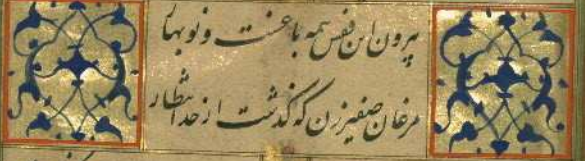 بیرون این قفس همه باغست و نوبهار
مرغان صفیرزن که گذشت از حد انتظار